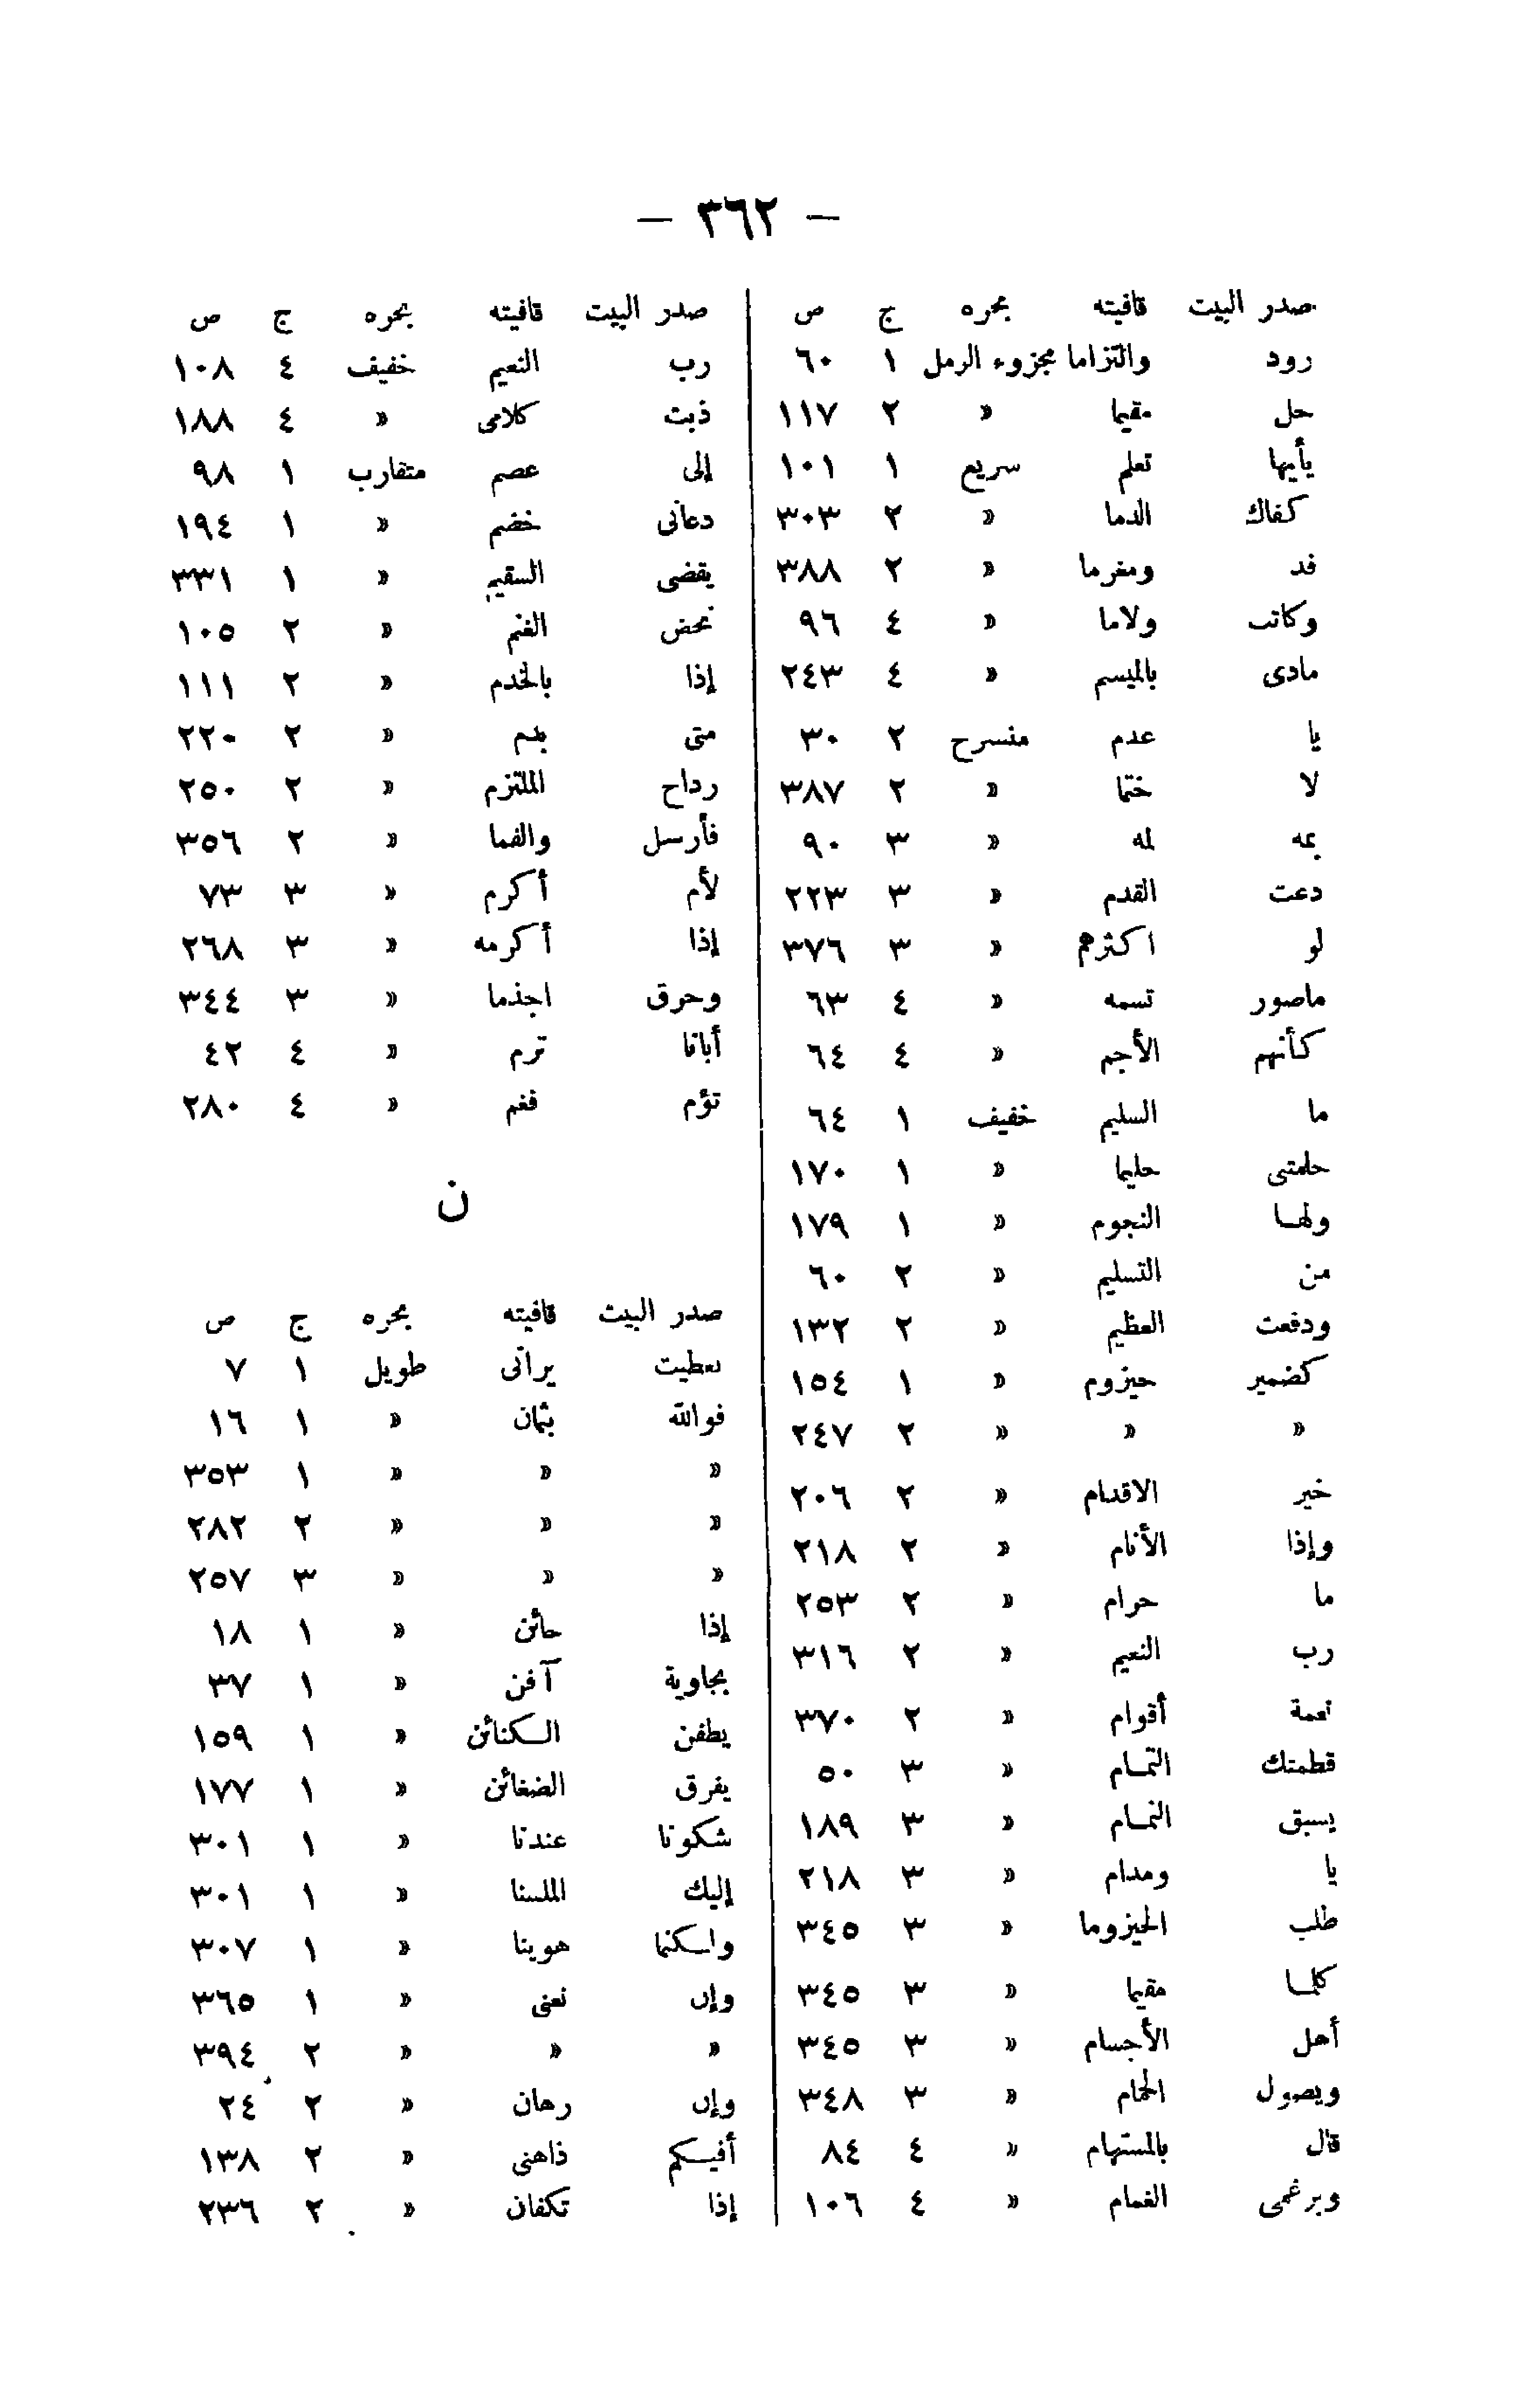 — ٣٦٢ —
صدر البيت قافيته بحره ج ص
رود والتزاما مجزوء الرمل ١ ٦٠
حل مقيما » ٢ ١١٧
يأيها تعلم سريع ١ ١٠١
كفاك الدما » ٢ ٣٠٣
فد ومغرما » ٢ ٣٨٨
وكاتب ولاما » ٤ ٩٦
مادى بالميسم » ٤ ٢٤٣
يا عدم منسرح ٢ ٣٠
لا ختما » ٢ ٣٨٧
يمه لمه » ٣ ٩٠
دعت القدم » ٣ ٢٢٣
لو اكثرهم » ٣ ٣٧٦
ماصور تسمه » ٤ ٦٣
كأنهم الأجم » ٤ ٦٤
ما السليم خفيف ١ ٦٤
حلمتى حليما » ١ ١٧٠
ولها النجوم » ١ ١٧٩
من التسليم » ٢ ٦٠
ودفعت العظيم » ٢ ١٣٢
كضمير حيزوم » ١ ١٥٤
» » » ٢ ٢٤٧
خير الاقدام » ٢ ٢٠٦
وإذا الأنام » ٢ ٢١٨
ما حرام » ٢ ٢٥٣
رب النعيم » ٢ ٣١٦
نعمة أقوام » ٢ ٣٧٠
قطمتك التمام » ٣ ٥٠
يسبق التمام » ٣ ١٨٩
يا ومدام » ٣ ٢١٨
طلب الحيزوما » ٣ ٣٤٥
كلما مقيما » ٣ ٣٤٥
أهل الأجسام » ٣ ٣٤٥
ويصول الحمام » ٣ ٣٤٨
قال بالمستهام » ٤ ٨٤
وبرغمى الغمام » ٤ ١٠٦
صدر البيت قافيته بحره ج ص
رب النعيم خفيف ٤ ١٠٨
ذبت كلامى » ٤ ١٨٨
إلى عصم متقارب ١ ٩٨
دعانى خضم » ١ ١٩٤
يقضى السقيم » ١ ٣٣١
نمحض الغنم » ٢ ١٠٥
إذا بالخدم » ٢ ١١١
متى بدم » ٢ ٢٢٠
رداح الملتزم » ٢ ٢٥٠
فأرسل والفما » ٢ ٣٥٦
لأم أكرم » ٣ ٧٣
إذا أكرمه » ٣ ٢٦٨
وحرق اجذما » ٣ ٣٤٤
أبانا ترم » ٤ ٤٢
تؤم فغم » ٤ ٢٨٠
ن
صدر البيت قافيته بحره ج ص
تعطيت يرانى طويل ١ ٧
فوالله بثمان » ١ ١٦
» » » ١ ٣٥٣
» » » ٢ ٢٨٢
» » » ٣ ٢٥٧
إذا حائن » ١ ١٨
بجاوية آفن » ١ ٣٧
يطفن الكنائن » ١ ١٥٩
يفرق الضغائن » ١ ١٧٧
شكونا عندنا » ١ ٣٠١
إليك الملسنا » ١ ٣٠١
واسكنما هوينا » ١ ٣٠٧
وإن نعنى » ١ ٣٦٥
» » » ٢ ٣٩٤
وإن رهان » ٢ ٢٤
أفيكم ذاهنى » ٢ ١٣٨
إذا تكفان » ٢ ٢٣٦